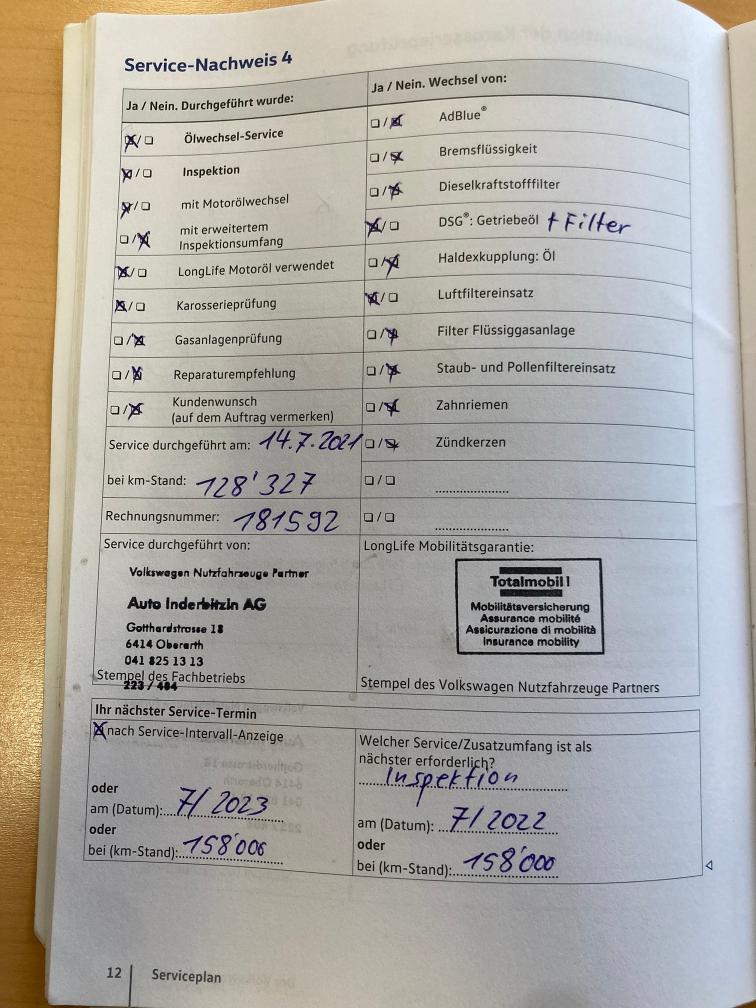 Service-Nachweis 4
Ja / Nein. Durchgeführt wurde:
Ölwechsel-Service
Inspektion
mit Motorölwechsel
mit erweitertem
Inspektionsumfang
LongLife Motoröl verwendet
Karosserieprüfung
Gasanlagenprüfung
Reparaturempfehlung
Kundenwunsch
(auf dem Auftrag vermerken)
Service durchgeführt am: 14.7.2021
bei km-Stand: 128'327
Rechnungsnummer: 181592
Ja / Nein. Wechsel von:
AdBlue®
Bremsflüssigkeit
Dieselkraftstofffilter
DSG®: Getriebeöl + Filter
Haldexkupplung: Öl
Luftfiltereinsatz
Filter Flüssiggasanlage
Staub- und Pollenfiltereinsatz
Zahnriemen
Zündkerzen
Service durchgeführt von:
Volkswagen Nutzfahrzeuge Partner
Auto Inderbitzin AG
Gotthardstrasse 18
6414 Oberarth
041 825 13 13
223 / 484
Stempel des Fachbetriebs
LongLife Mobilitätsgarantie:
Totalmobil!
Mobilitätsversicherung
Assurance mobilité
Assicurazione di mobilità
Insurance mobility
Stempel des Volkswagen Nutzfahrzeuge Partners
Ihr nächster Service-Termin
nach Service-Intervall-Anzeige
oder
am (Datum): 7/2023
oder
bei (km-Stand): 158'000
Welcher Service/Zusatzumfang ist als
nächster erforderlich?
Inspektion
am (Datum): 7/2022
oder
bei (km-Stand): 158'000
12 Serviceplan